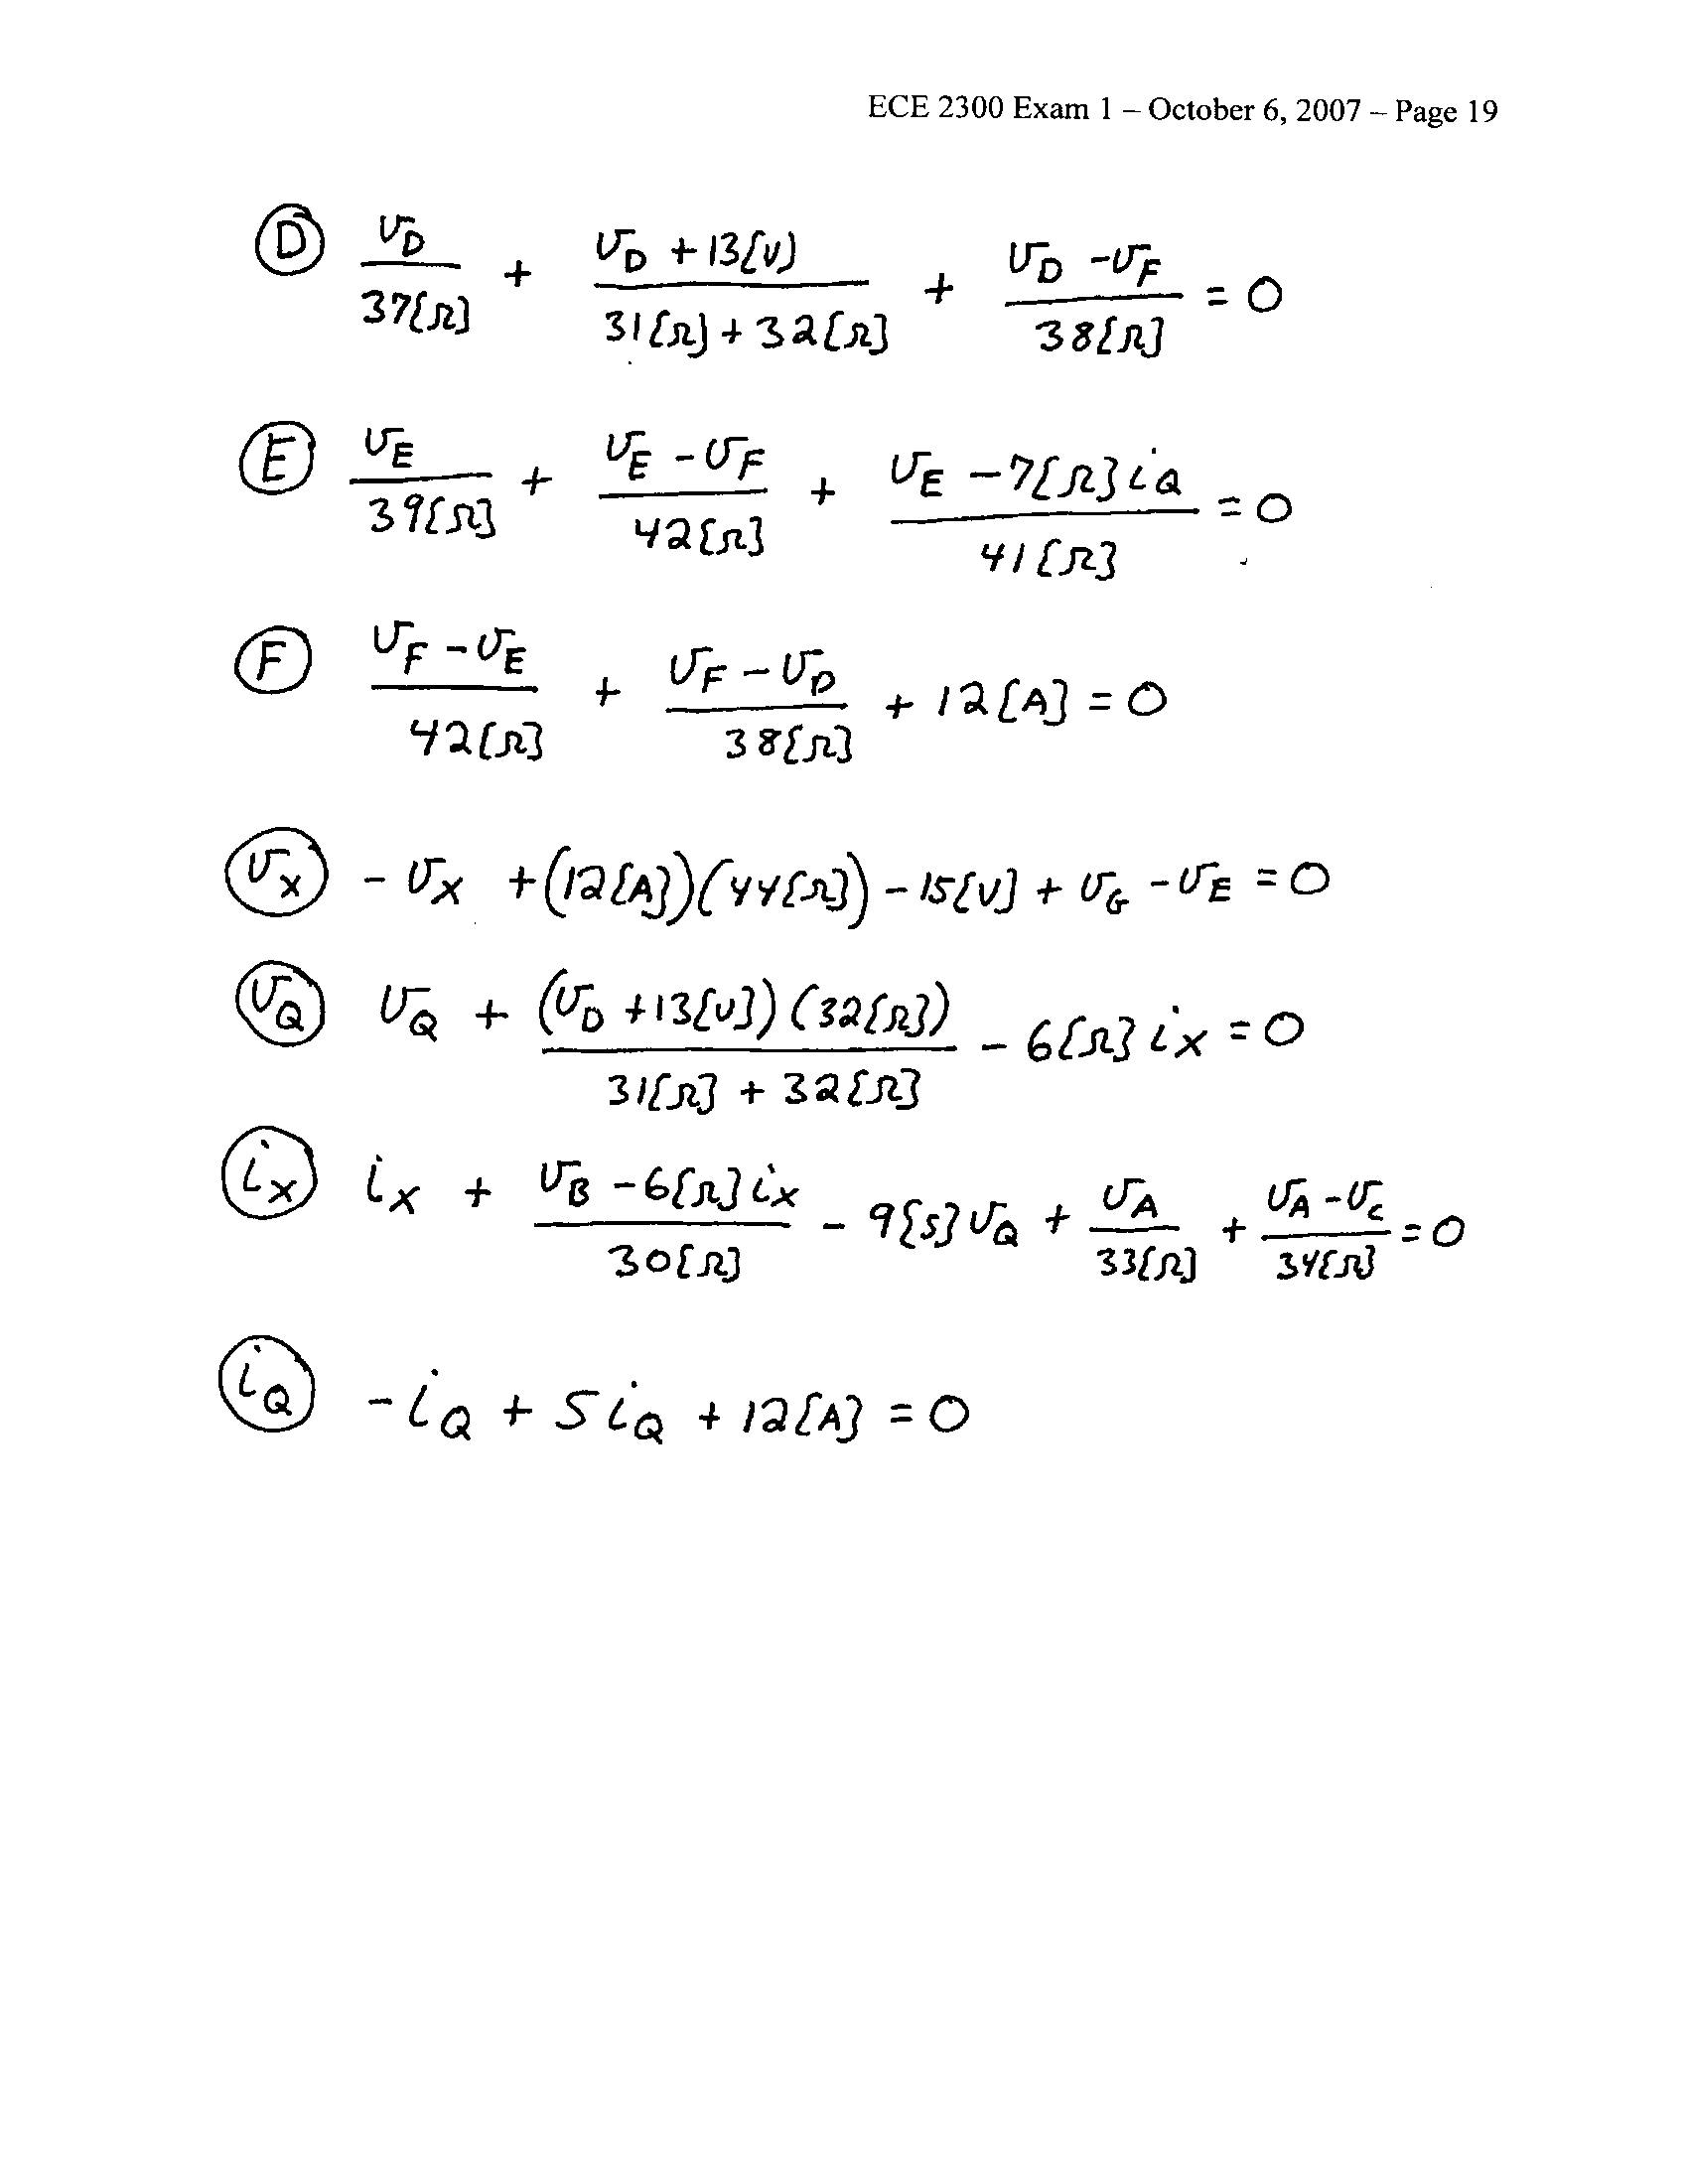 ECE 2300 Exam 1 – October 6, 2007 – Page 19
(D) v_D / 37[Ω] + (v_D + 13[V]) / (31[Ω] + 32[Ω]) + (v_D - v_F) / 38[Ω] = 0
(E) v_E / 39[Ω] + (v_E - v_F) / 42[Ω] + (v_E - 7[Ω] i_Q) / 41[Ω] = 0
(F) (v_F - v_E) / 42[Ω] + (v_F - v_D) / 38[Ω] + 12[A] = 0
(v_X) - v_X + (12[A])(44[Ω]) - 15[V] + v_G - v_E = 0
(v_Q) v_Q + (v_D + 13[V])(32[Ω]) / (31[Ω] + 32[Ω]) - 6[Ω] i_X = 0
(i_X) i_X + (v_B - 6[Ω] i_X) / 30[Ω] - 9[S] v_Q + v_A / 33[Ω] + (v_A - v_C) / 34[Ω] = 0
(i_Q) - i_Q + 5 i_Q + 12[A] = 0